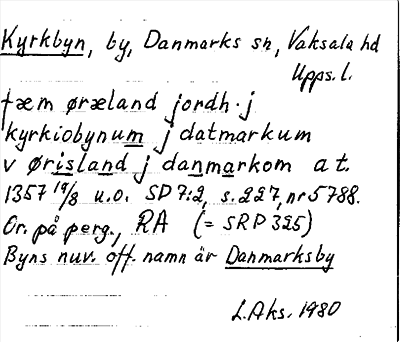 Kyrkbyn, by, Danmarks sn, Vaksala hd
Upps. l.
fæm øræland jordh. j
kyrkiobynum j datmarkum
v ørisland j danmarkom a t.
1357 19/8 u.o. SD 7:2, s. 227, nr 5788.
Or. på perg., RA (= SRP 325)
Byns nuv. off. namn är Danmarksby
L.Aks. 1980